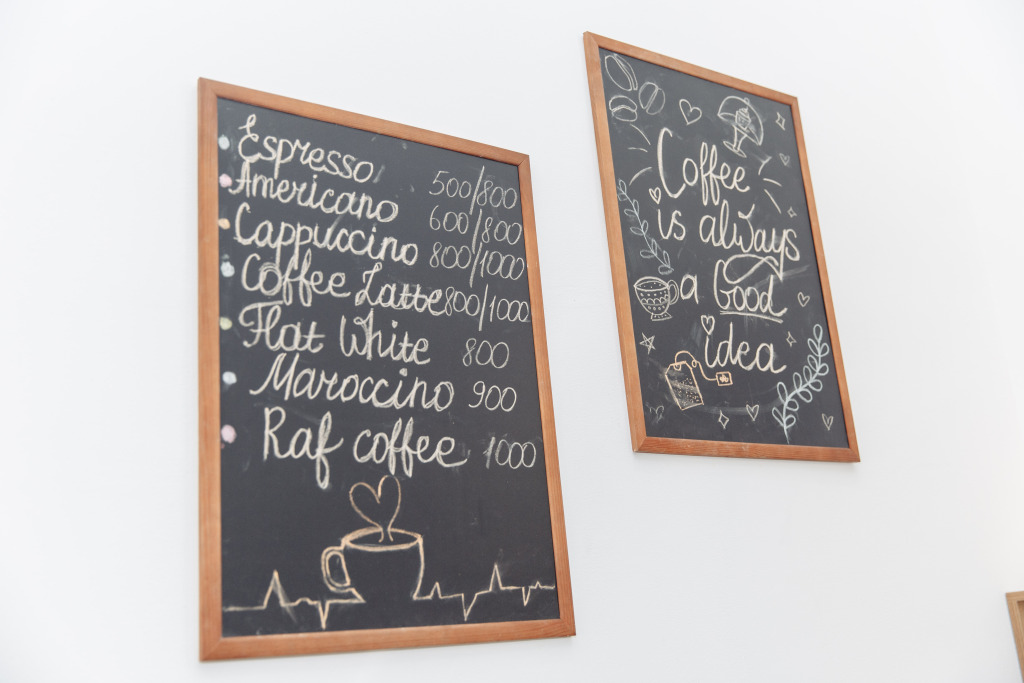 Espresso 500/800
Americano 600/800
Cappuccino 800/1000
Coffee Latte 800/1000
Flat White 800
Maroccino 900
Raf coffee 1000
Coffee
is always
a Good
idea